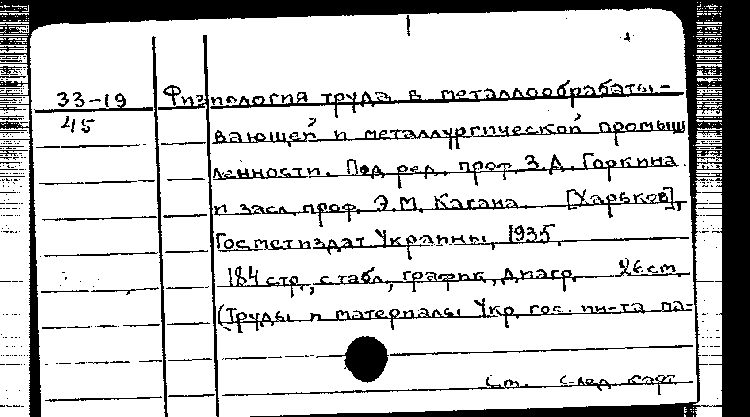 33-19
45
Физиология труда в металлообрабаты-
вающей и металлургической промыш
ленности. Под ред. проф. З.Д. Горкина
и засл. проф. Э.М. Кагана. [Харьков],
Госметиздат Украины, 1935.
184 стр., с табл., график., диагр. 26 см.
(Труды и материалы Укр. гос. ин-та па-
См. след. карт